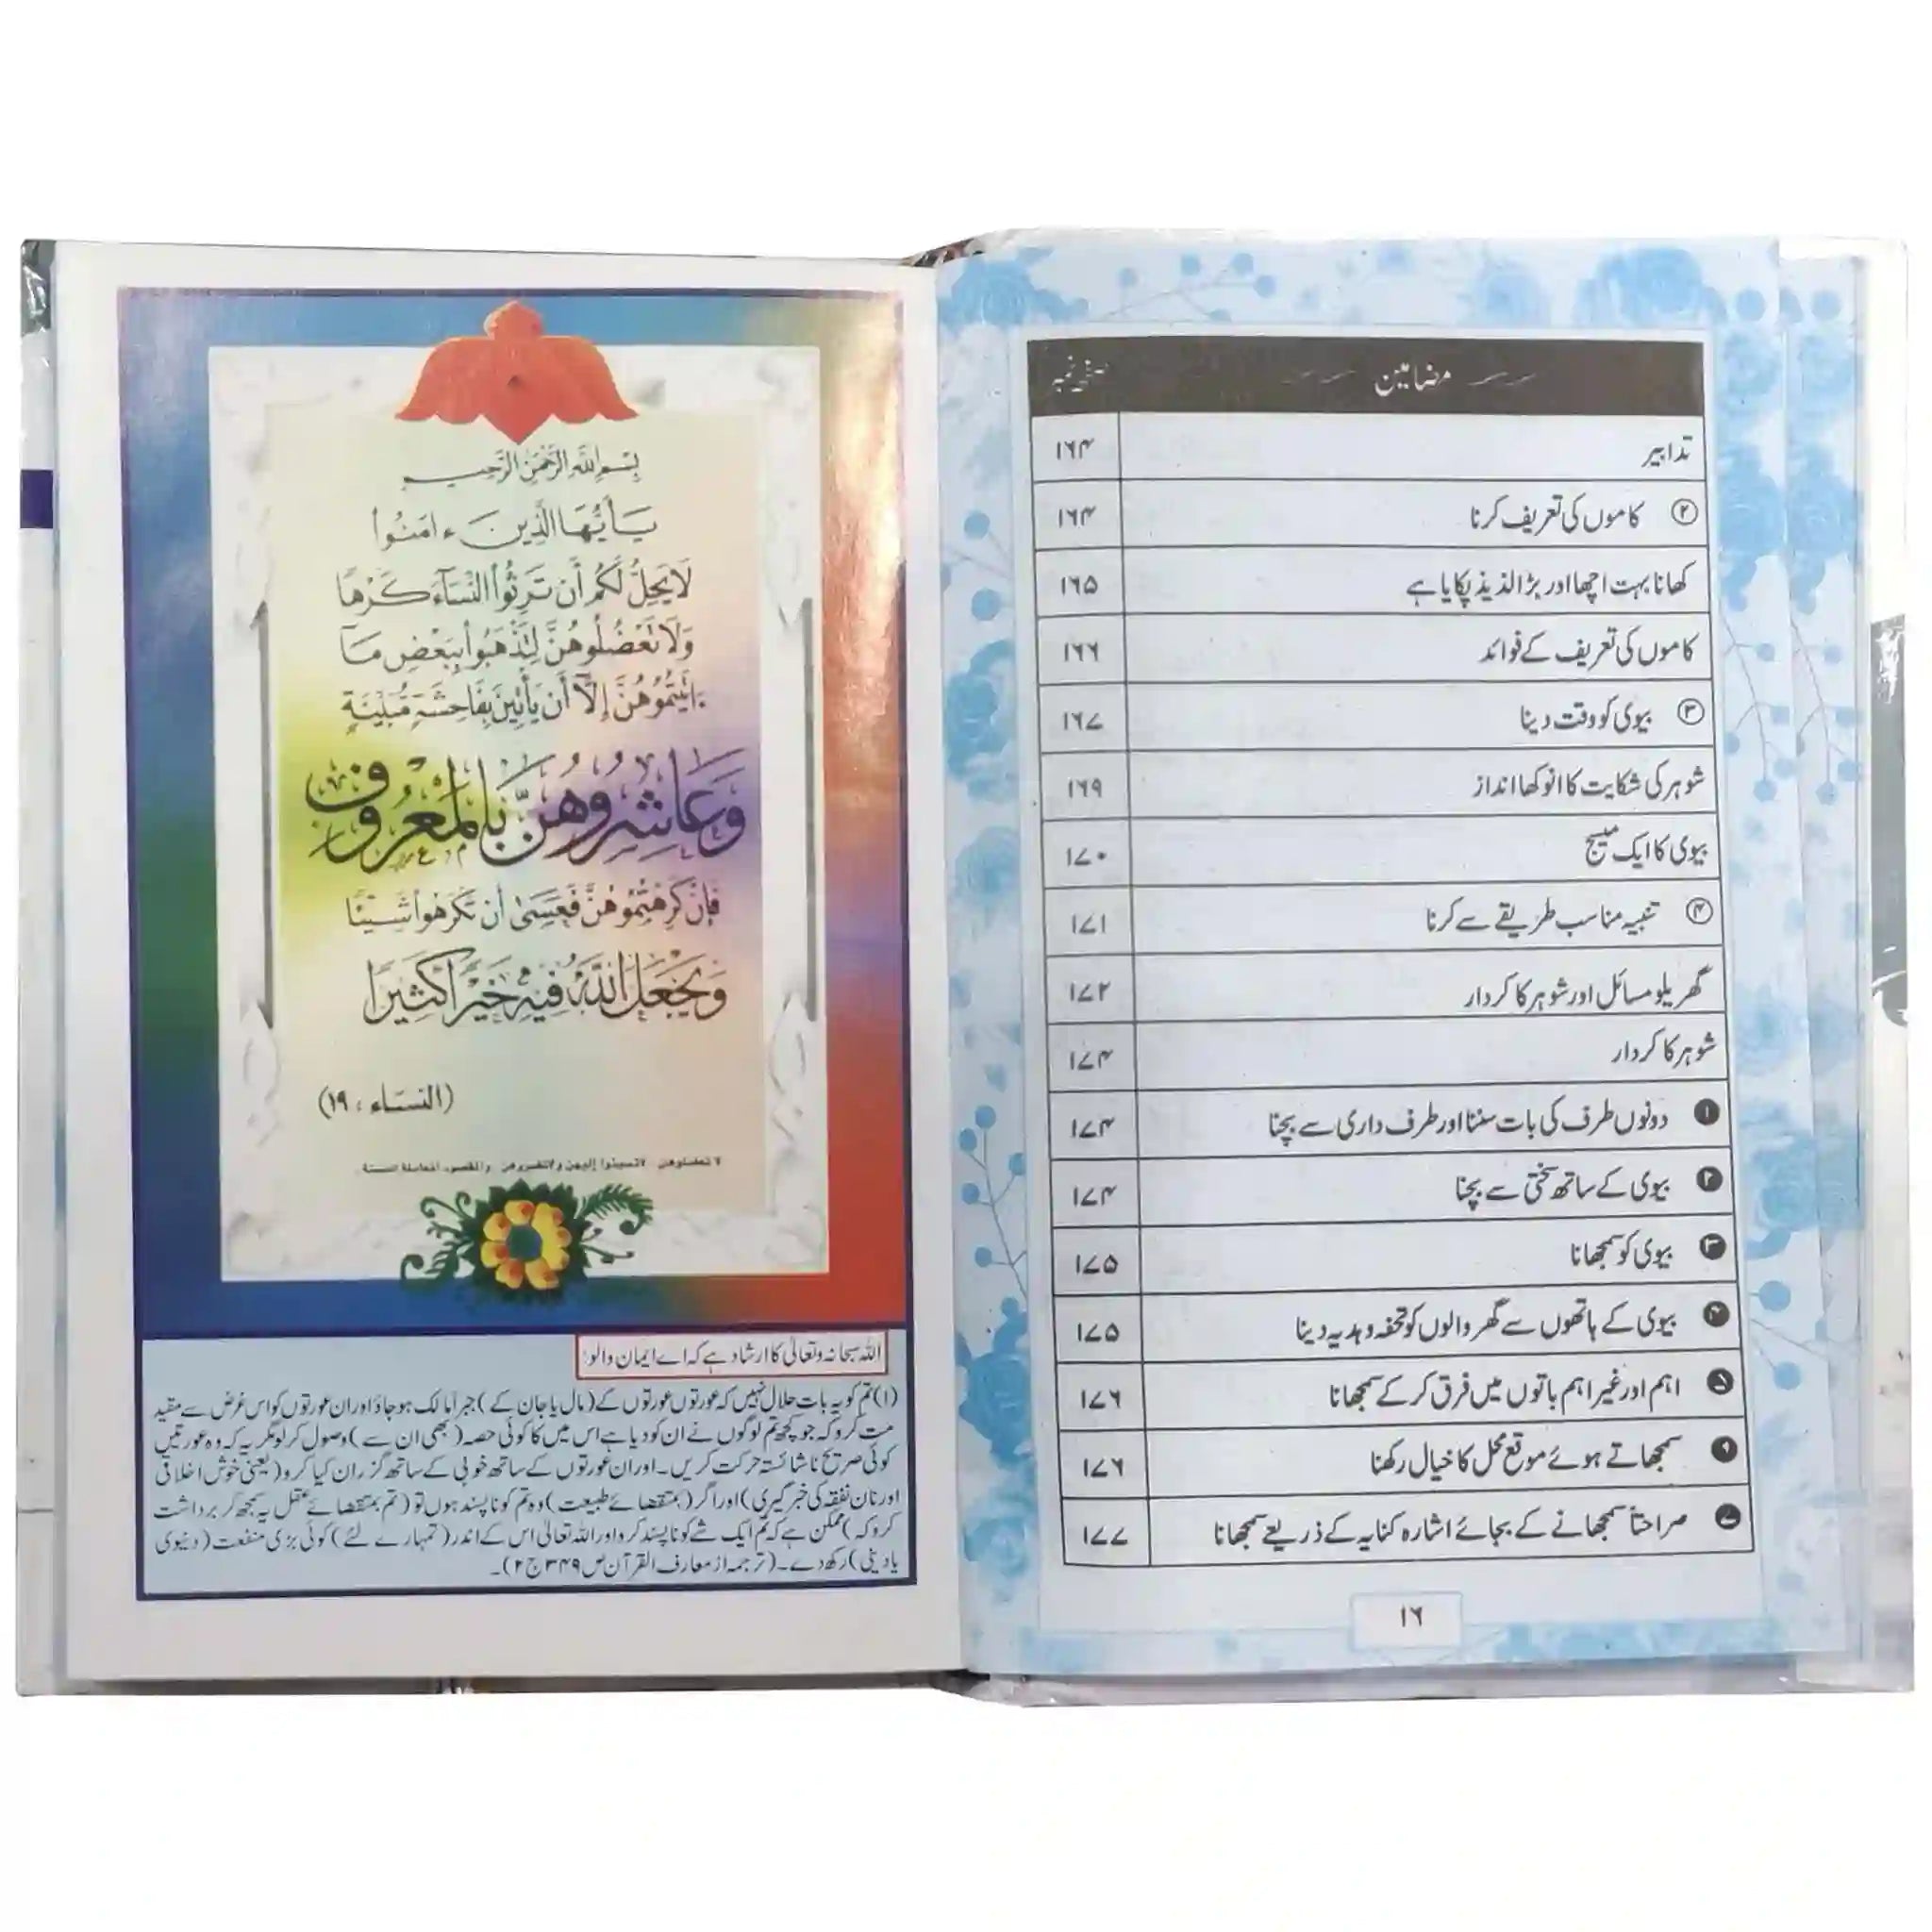 بِسْمِ اللهِ الرَّحْمٰنِ الرَّحِيمِ
يَـٰٓأَيُّهَا الَّذِينَ ءَامَنُوا
لَا يَحِلُّ لَكُمْ أَن تَرِثُوا النِّسَآءَ كَرْهًا
وَلَا تَعْضُلُوهُنَّ لِتَذْهَبُوا بِبَعْضِ مَآ
ءَاتَيْتُمُوهُنَّ إِلَّآ أَن يَأْتِينَ بِفَاحِشَةٍ مُّبَيِّنَةٍ
وَعَاشِرُوهُنَّ بِالْمَعْرُوفِ
فَإِن كَرِهْتُمُوهُنَّ فَعَسَىٰٓ أَن تَكْرَهُوا شَيْئًا
وَيَجْعَلَ اللهُ فِيهِ خَيْرًا كَثِيرًا
(النساء ، ١٩)
اللہ سبحانہ وتعالیٰ کا ارشاد ہے کہ اے ایمان والو!
(۱) تم کو یہ بات حلال نہیں کہ عورتوں عورتوں کے (مال یا جان کے) جبراً مالک ہو جاؤ اور ان عورتوں کو اس غرض سے مقید
مت کرو کہ جو کچھ تم لوگوں نے ان کو دیا ہے اس میں کا کوئی حصہ (بھی ان سے) وصول کر لو مگر یہ کہ وہ عورتیں
کوئی صریح ناشائستہ حرکت کریں۔ اور ان عورتوں کے ساتھ خوبی کے ساتھ گزران کیا کرو (یعنی خوش اخلاقی
اور نان نفقہ کی خبر گیری) اور اگر (بمقتضائے طبیعت) وہ تم کو ناپسند ہوں تو (تم بمقتضائے عقل یہ سمجھ کر برداشت
کرو کہ) ممکن ہے کہ تم ایک شے کو ناپسند کرو اور اللہ تعالیٰ اس کے اندر (تمہارے لئے) کوئی بڑی منفعت (دنیوی
یا دینی) رکھ دے۔ (ترجمہ از معارف القرآن ص ۳۴۹ ج ۲)۔
مضامین صفحہ نمبر
تدابیر ۱۶۴
② کاموں کی تعریف کرنا ۱۶۴
کھانا بہت اچھا اور بڑا لذیذ پکایا ہے ۱۶۵
کاموں کی تعریف کے فوائد ۱۶۶
③ بیوی کو وقت دینا ۱۶۷
شوہر کی شکایت کا انوکھا انداز ۱۶۹
بیوی کا ایک میسج ۱۷۰
④ تنبیہ مناسب طریقے سے کرنا ۱۷۱
گھریلو مسائل اور شوہر کا کردار ۱۷۲
شوہر کا کردار ۱۷۴
❶ دونوں طرف کی بات سننا اور طرف داری سے بچنا ۱۷۴
❷ بیوی کے ساتھ سختی سے بچنا ۱۷۴
❸ بیوی کو سمجھانا ۱۷۵
❹ بیوی کے ہاتھوں سے گھر والوں کو تحفہ و ہدیہ دینا ۱۷۵
❺ اہم اور غیر اہم باتوں میں فرق کر کے سمجھانا ۱۷۶
❻ سمجھاتے ہوئے موقع محل کا خیال رکھنا ۱۷۶
❼ صراحتاً سمجھانے کے بجائے اشارہ کنایہ کے ذریعے سمجھانا ۱۷۷
۱۶